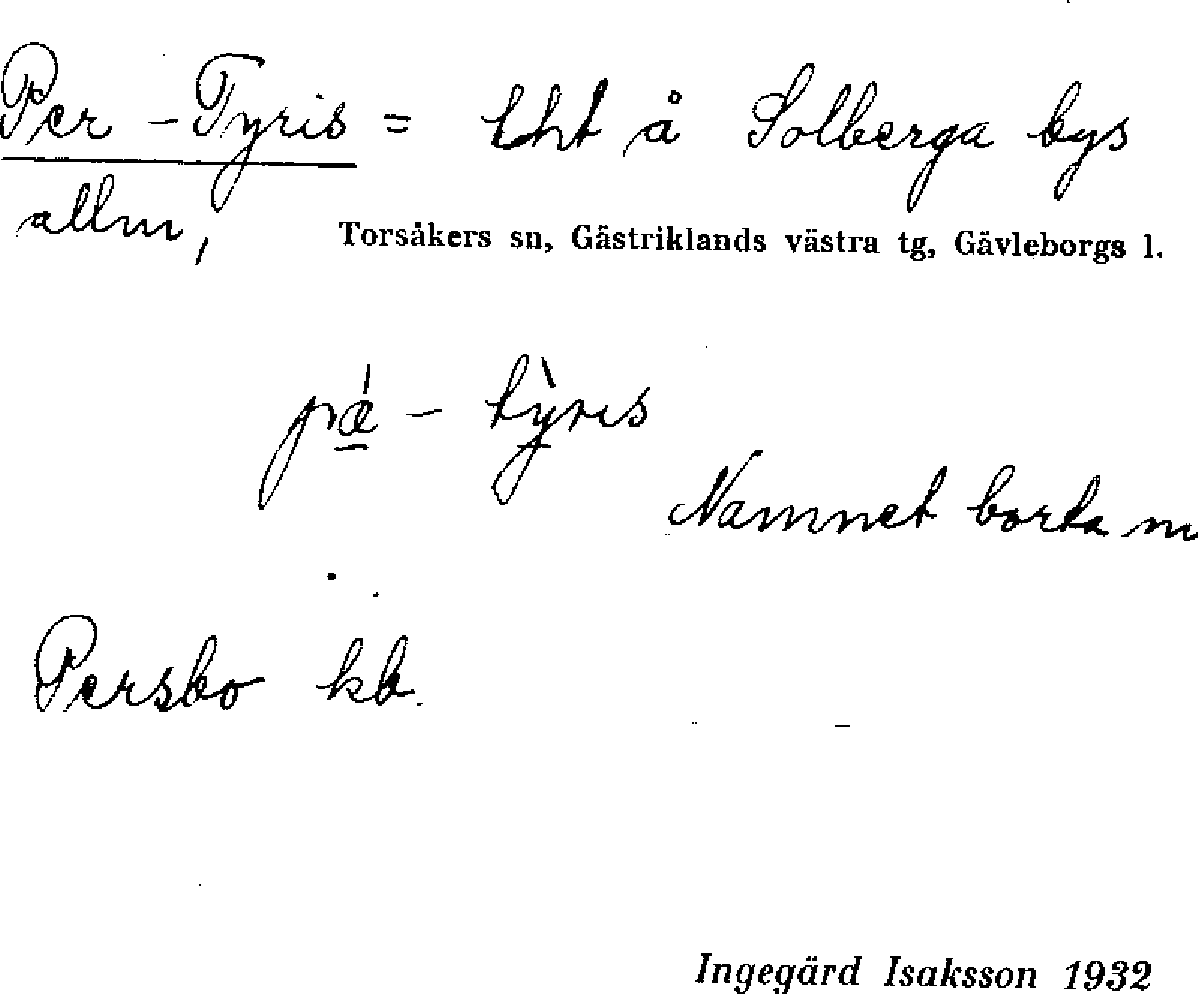 Per - Tyris = lht å Solberga bys
allm, Torsåkers sn, Gästriklands västra tg, Gävleborgs l.
pǽ - tỳris
Namnet borta
Persbo kb.
Ingegärd Isaksson 1932